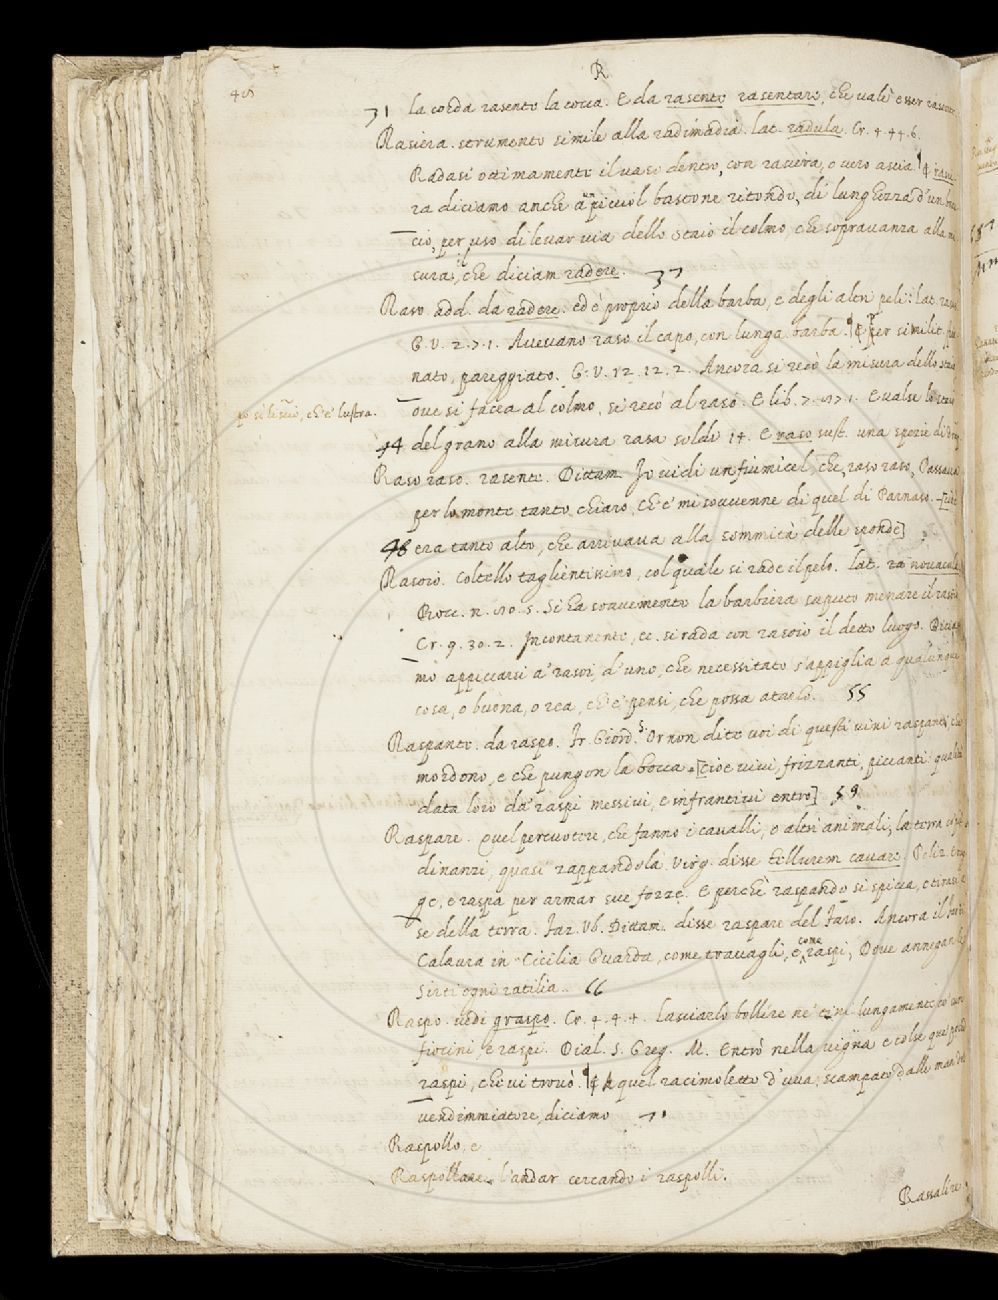 R
31 la corda rasente la cocca. E da rasente rasentare, che vale esser rasente
Rasiera. strumento simile alla radimadia. lat. radula. Cr. 4. 44. 6.
Radasi ottimamente il vaso dentro, con rasiera, o vero ascia. ¶ rasie-
ra diciamo anche a un picciol bastone ritondo, di lunghezza d'un brac
cio, per uso di levar via dello staio il colmo, che sopravanza alla mi
sura, il che diciam radere. 37
Raso. add. da radere. ed è proprio della barba, e degli altri peli: lat. rasus
G. V. 2. 7. 1. Avevano raso il capo, con lunga barba. ¶ E per similit.
nato, pareggiato. G. V. 12. 12. 2. Ancora si recò la misura dello staio
ove si facea al colmo, si recò al raso. E lib. 7. E valse lo staio
po si liscio, ch'è lustra.
44 del grano alla misura rasa soldi 14. E raso sust. una spezie di drap
Raso raso. rasente. Dittam. Io vidi un fiumicel, che raso raso, Passava
per lo monte tanto chiaro, Ch'e' mi sovvenne di quel di Parnaso. [cioè
48 era tanto alto, che arrivava alla sommità delle sponde]
Rasoio. Coltello taglientissimo, col quale si rade il pelo. lat. novacula
Bocc. n. 80. 5. Si ha soavemente la barbiera saputo menare il rasoio
Cr. 9. 30. 2. Incontanente, ec. si rada con rasoio il detto luogo. Dicia
mo appiccarsi a' rasoi, d'uno, che necessitato s'appiglia a qualunque
cosa, o buona, o rea, ch'e' pensi, che possa atarlo. 55
Raspante. da raspo. Fr. Giord. S. Or non dite voi di questi vini raspanti, che
mordono, e che pungon la bocca. [cioè vini frizzanti, piccanti: qualità
data loro da' raspi messivi, e infrantivi entro] 59
Raspare. Quel percuotere, che fanno i cavalli, o altri animali, la terra co' piè
dinanzi, quasi zappandola. Virg. disse tellurem cavare.
ge, e raspa per armar sue forze. E perchè raspando si spicca,
se della terra. Faz. Ub. Dittam. disse raspare del Faro. Ancora il
Calavra in Cicilia Guarda, come travagli, e come raspi, Dove annegan
Sirti ogni ratilia. 66
Raspo. vedi graspo. Cr. 4. 4. 4. Lasciarlo bollire ne' tini lungamente co' suoi
fiocini, e raspi. Dial. S. Greg. M. Entrò nella vigna e colse que' pochi
raspi, che vi trovò. ¶ A quel racimoletto d'uva, scampato dalle man del
vendemmiatore, diciamo 71
Raspollo, e
Raspollare. l'andar cercando i raspolli.
Rassalire